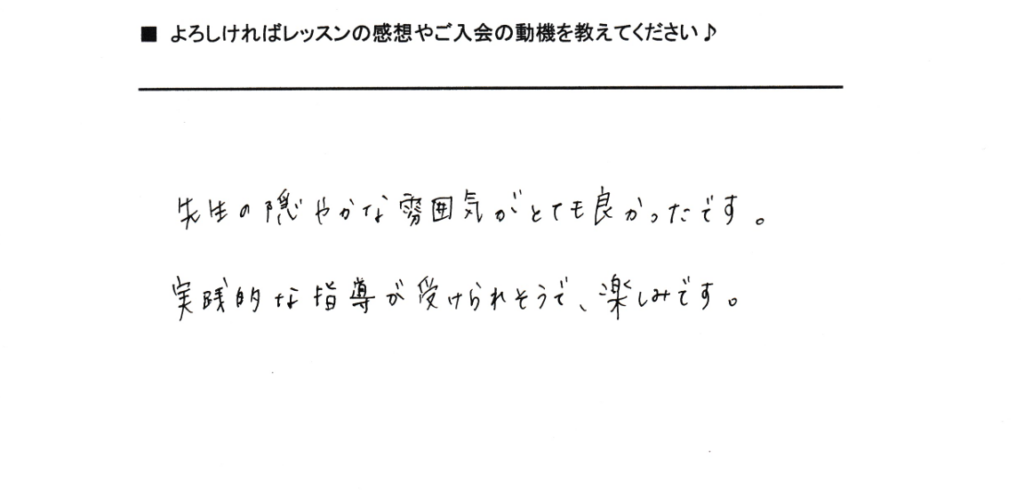 ■ よろしければレッスンの感想やご入会の動機を教えてください♪
先生の隠やかな雰囲気がとても良かったです。
実践的な指導が受けられそうで、楽しみです。